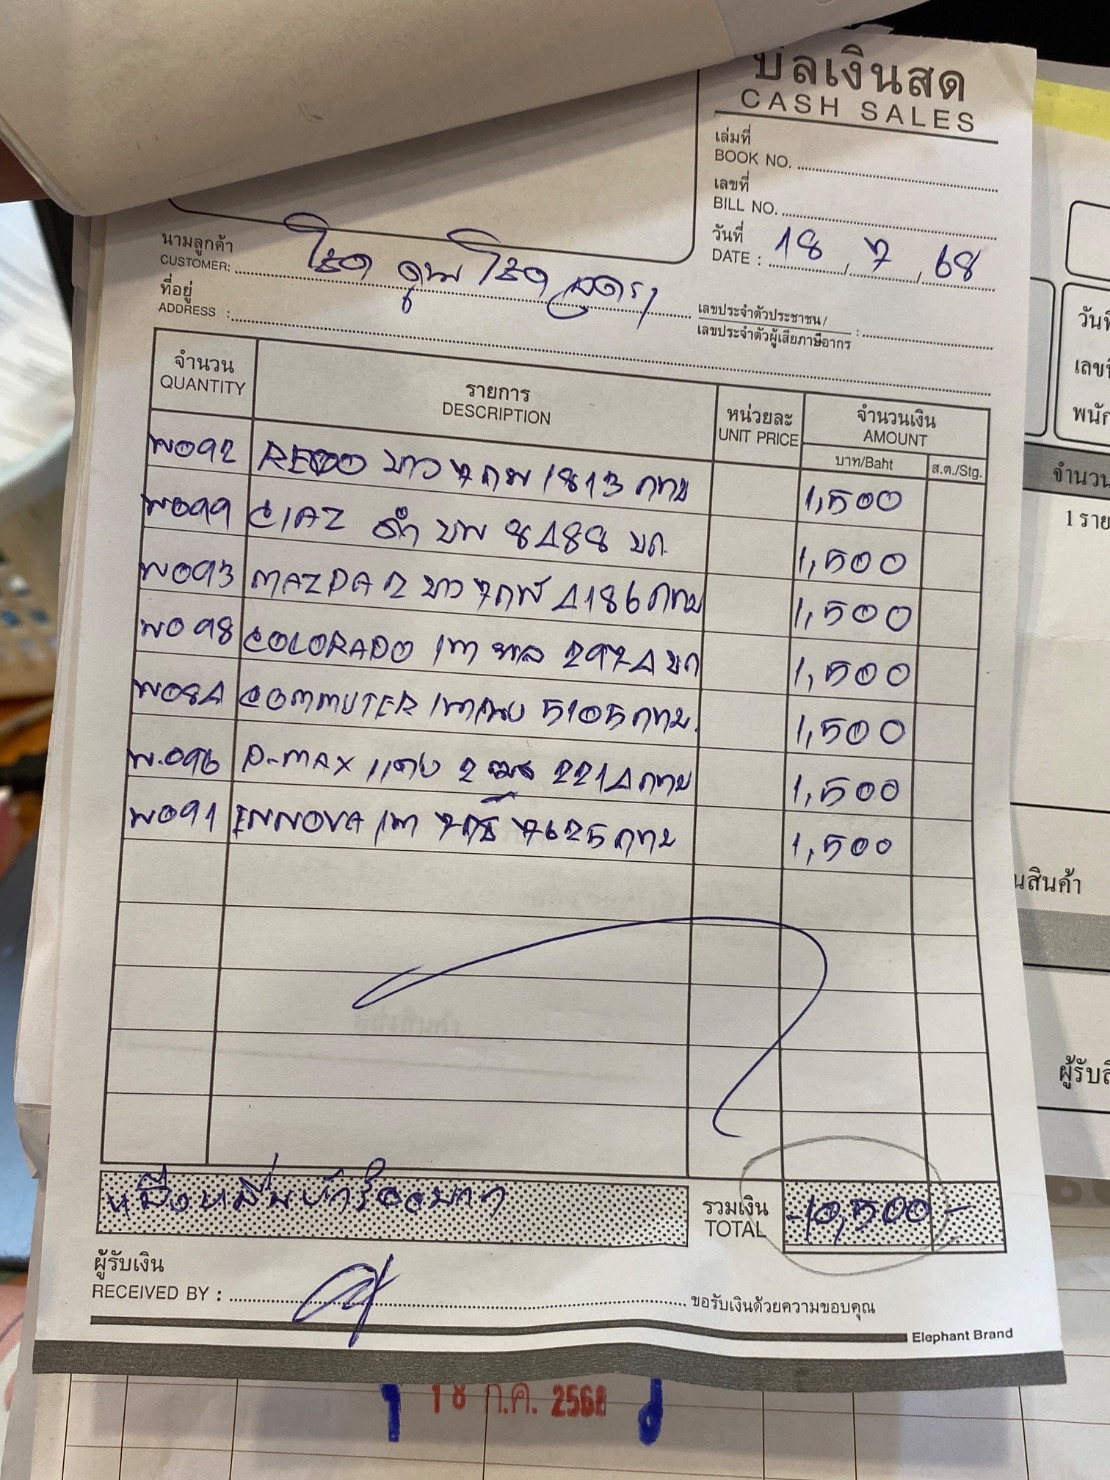 บิลเงินสด
CASH SALES
เล่มที่
BOOK NO.
เลขที่
BILL NO.
วันที่
DATE : 18 / 7 / 68
นามลูกค้า
CUSTOMER:
ที่อยู่
ADDRESS :
เลขประจำตัวประชาชน/
เลขประจำตัวผู้เสียภาษีอากร :
จำนวน
QUANTITY
รายการ
DESCRIPTION
หน่วยละ
UNIT PRICE
จำนวนเงิน
AMOUNT
บาท/Baht ส.ต./Stg.
W092 REVO ขาว 7กพ 1813 กทม 1,500
W099 CIAZ ดำ ขพ 8488 ขก 1,500
W093 MAZDA 2 ขาว 4186 กทม 1,500
W098 COLORADO เทา 2974 ขก 1,500
W084 COMMUTER 5105 กทม. 1,500
W.096 D-MAX แดง 2 2214 กทม 1,500
W091 INNOVA เทา 7625 กทม 1,500
หนึ่งหมื่นห้าร้อยบาท
รวมเงิน
TOTAL -10,500-
ผู้รับเงิน
RECEIVED BY :
ขอรับเงินด้วยความขอบคุณ
Elephant Brand
18 ก.ค. 2568
วันที่
เลขที่
จำนวน
1 ราย